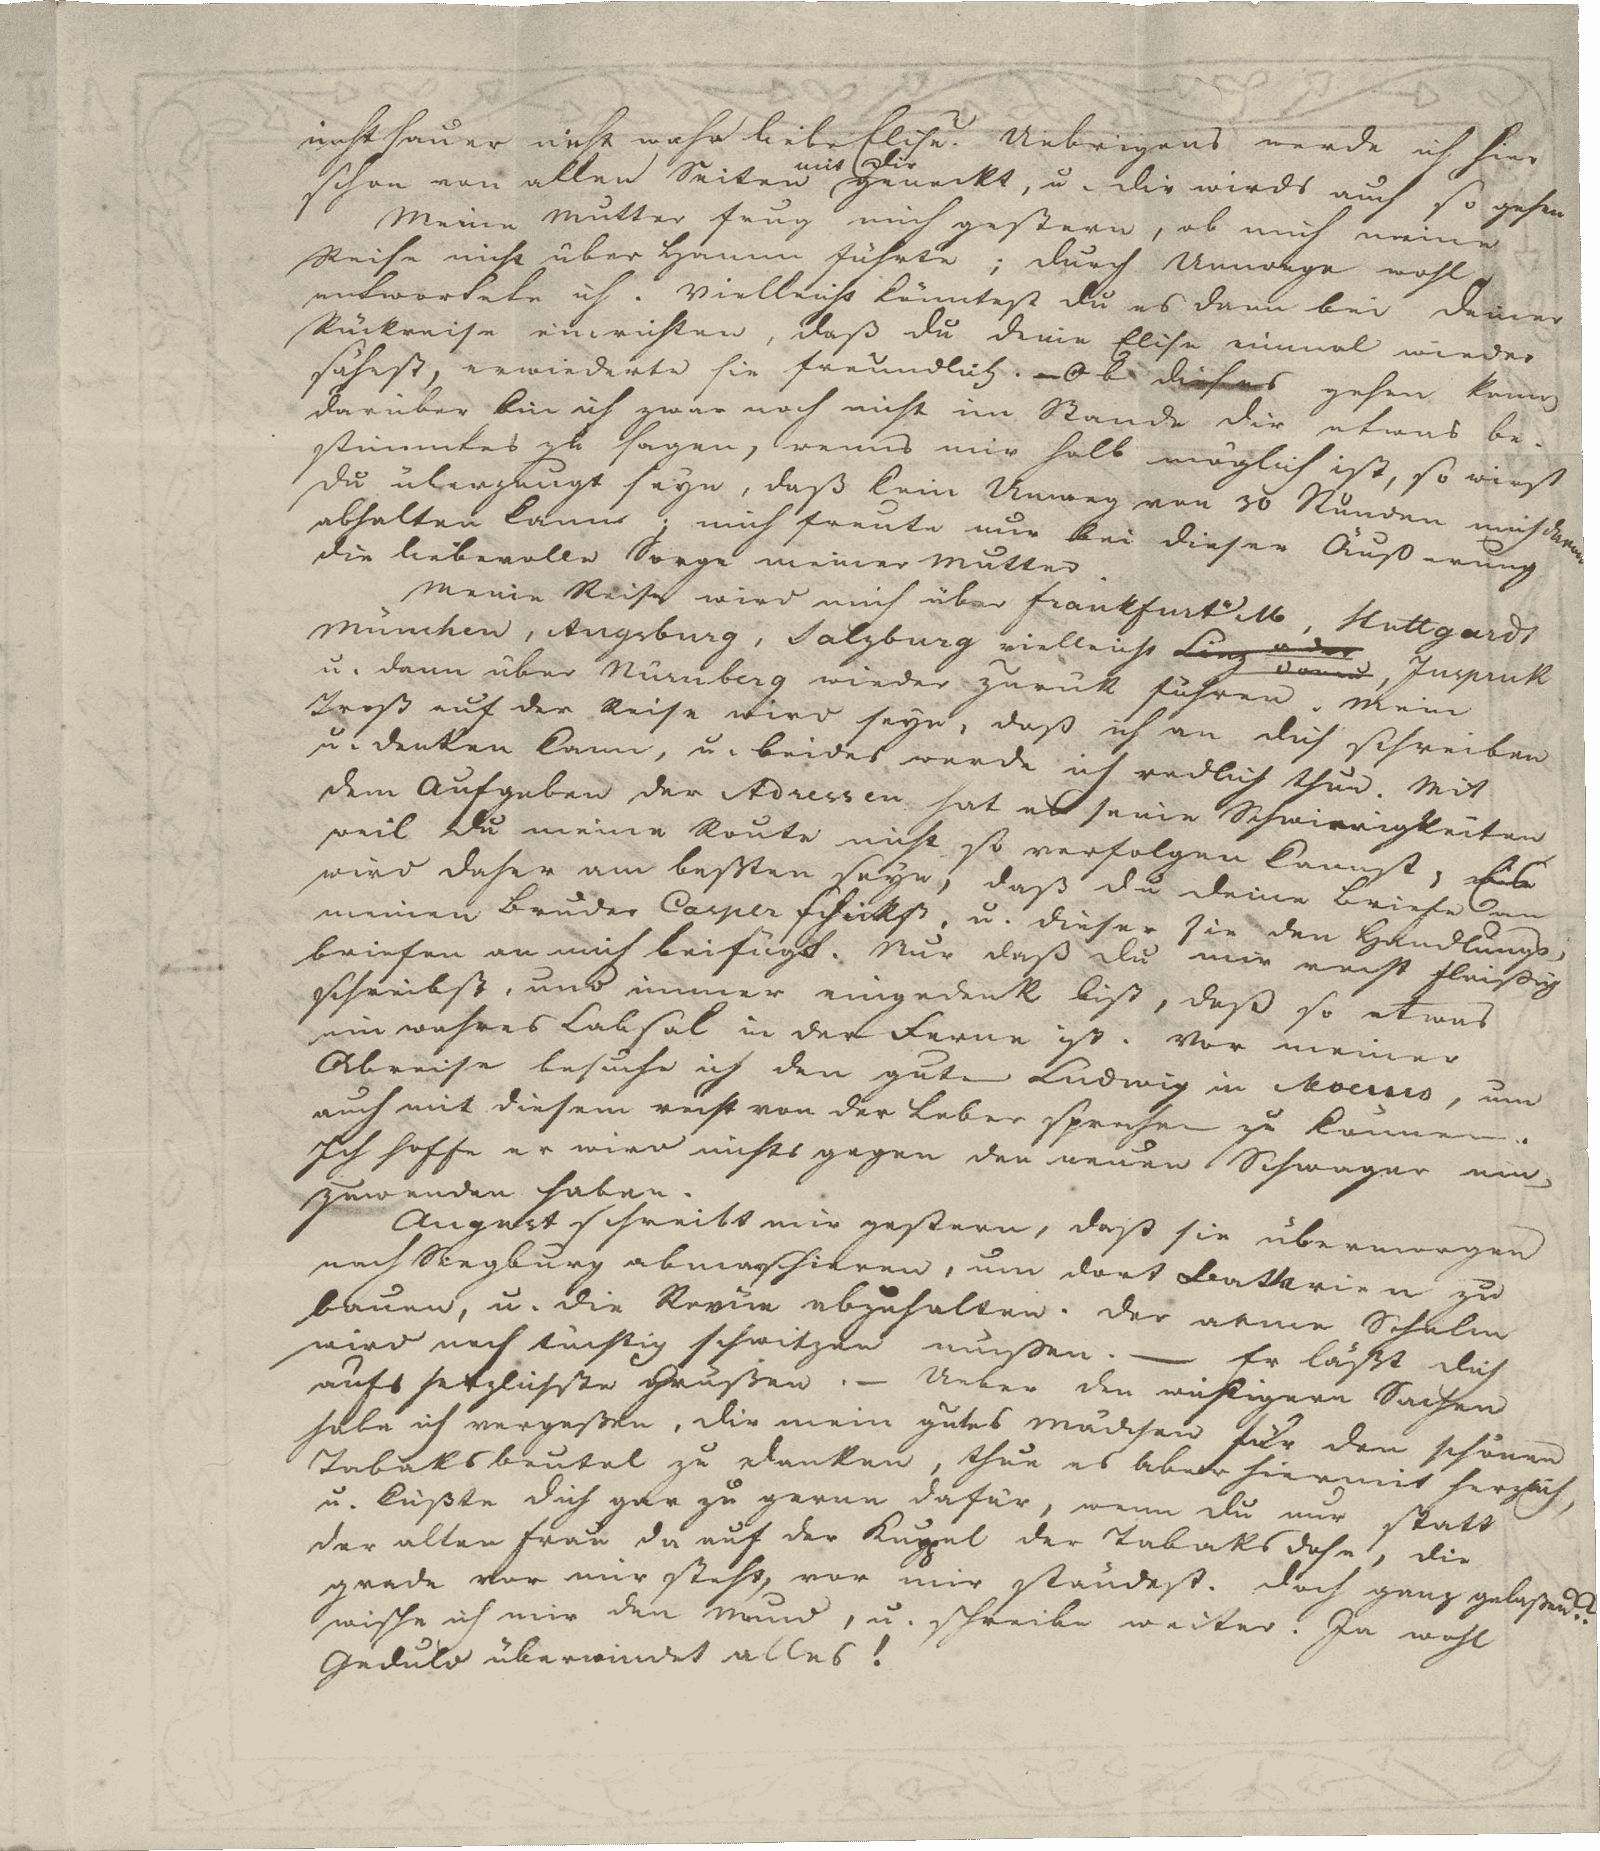 nicht sauer nicht wahr liebe Elise? Uebrigens werde ich hier
schon von allen Seiten mit Dir geneckt, u. dir wirds auch so gehen
Meine Mutter frug mich gestern, ob mich meine
Reise nicht über Hamm führte; durch Umwege wohl,
antwortete ich. Vielleicht könntest du es dann bei deiner
Rückreise einrichten, daß du deine Elise einmal wieder
sähest, erwiederte sie freundlich. – Ob dieses gehen kann
darüber bin ich zwar noch nicht im Stande dir etwas be-
stimmtes zu sagen, wenns mir halb möglich ist, so wirst
du überzeugt seyn, daß kein Umweg von 30 Stunden mich davon
abhalten kann; mich freute nur bei dieser Äußerung
die liebevolle Sorge meiner Mutter.
Meine Reise wird mich über Frankfurt a/M, Stuttgardt
München, Augsburg, Salzburg vielleicht Linz oder, Inspruk
u. dann über Nürnberg wieder zurük führen. Mein
Trost auf der Reise wird seyn, daß ich an dich schreiben
u. denken kann, u. beides werde ich redlich thun. Mit
dem Aufgeben der Adressen hat es seine Schwierigkeiten
weil du meine Route nicht so verfolgen kannst, es
wird daher am besten seyn, daß du deine Briefe an
meinen Bruder Casper schickst, u. dieser sie den Handlungs-
briefen an mich beifügt. Nur daß du mir recht fleißig
schreibst, und immer eingedenk bist, daß so etwas
ein wahres Labsal in der Ferne ist. Vor meiner
Abreise besuche ich den guten Ludwig in Moeurs, um
auch mit diesem recht von der Leber sprechen zu können.
Ich hoffe er wird nichts gegen den neuen Schwager ein-
zuwenden haben.
August schreibt mir gestern, daß sie übermorgen
nach Siegburg abmaschieren, um dort Batterien zu
bauen, u. die Revüe abzuhalten. Der arme Schelm
wird noch tüchtig schwitzen müssen. — Er läßt dich
aufs herzlichste Grüßen. – Ueber den wichtigern Sachen
habe ich vergeßen, dir mein gutes Mädchen für den schönen
Tabaksbeutel zu danken, thue es aber hiermit herzlich,
u. küßte dich gar zu gerne dafür, wenn du nur statt
der alten Frau da auf der Kuppel der Tabaksdose, die
grade vor mir steht, vor mir ständest. Doch ganz gelaßen??
wische ich mir den Mund, u. schreibe weiter. Ja wohl
Geduld überwindet alles!